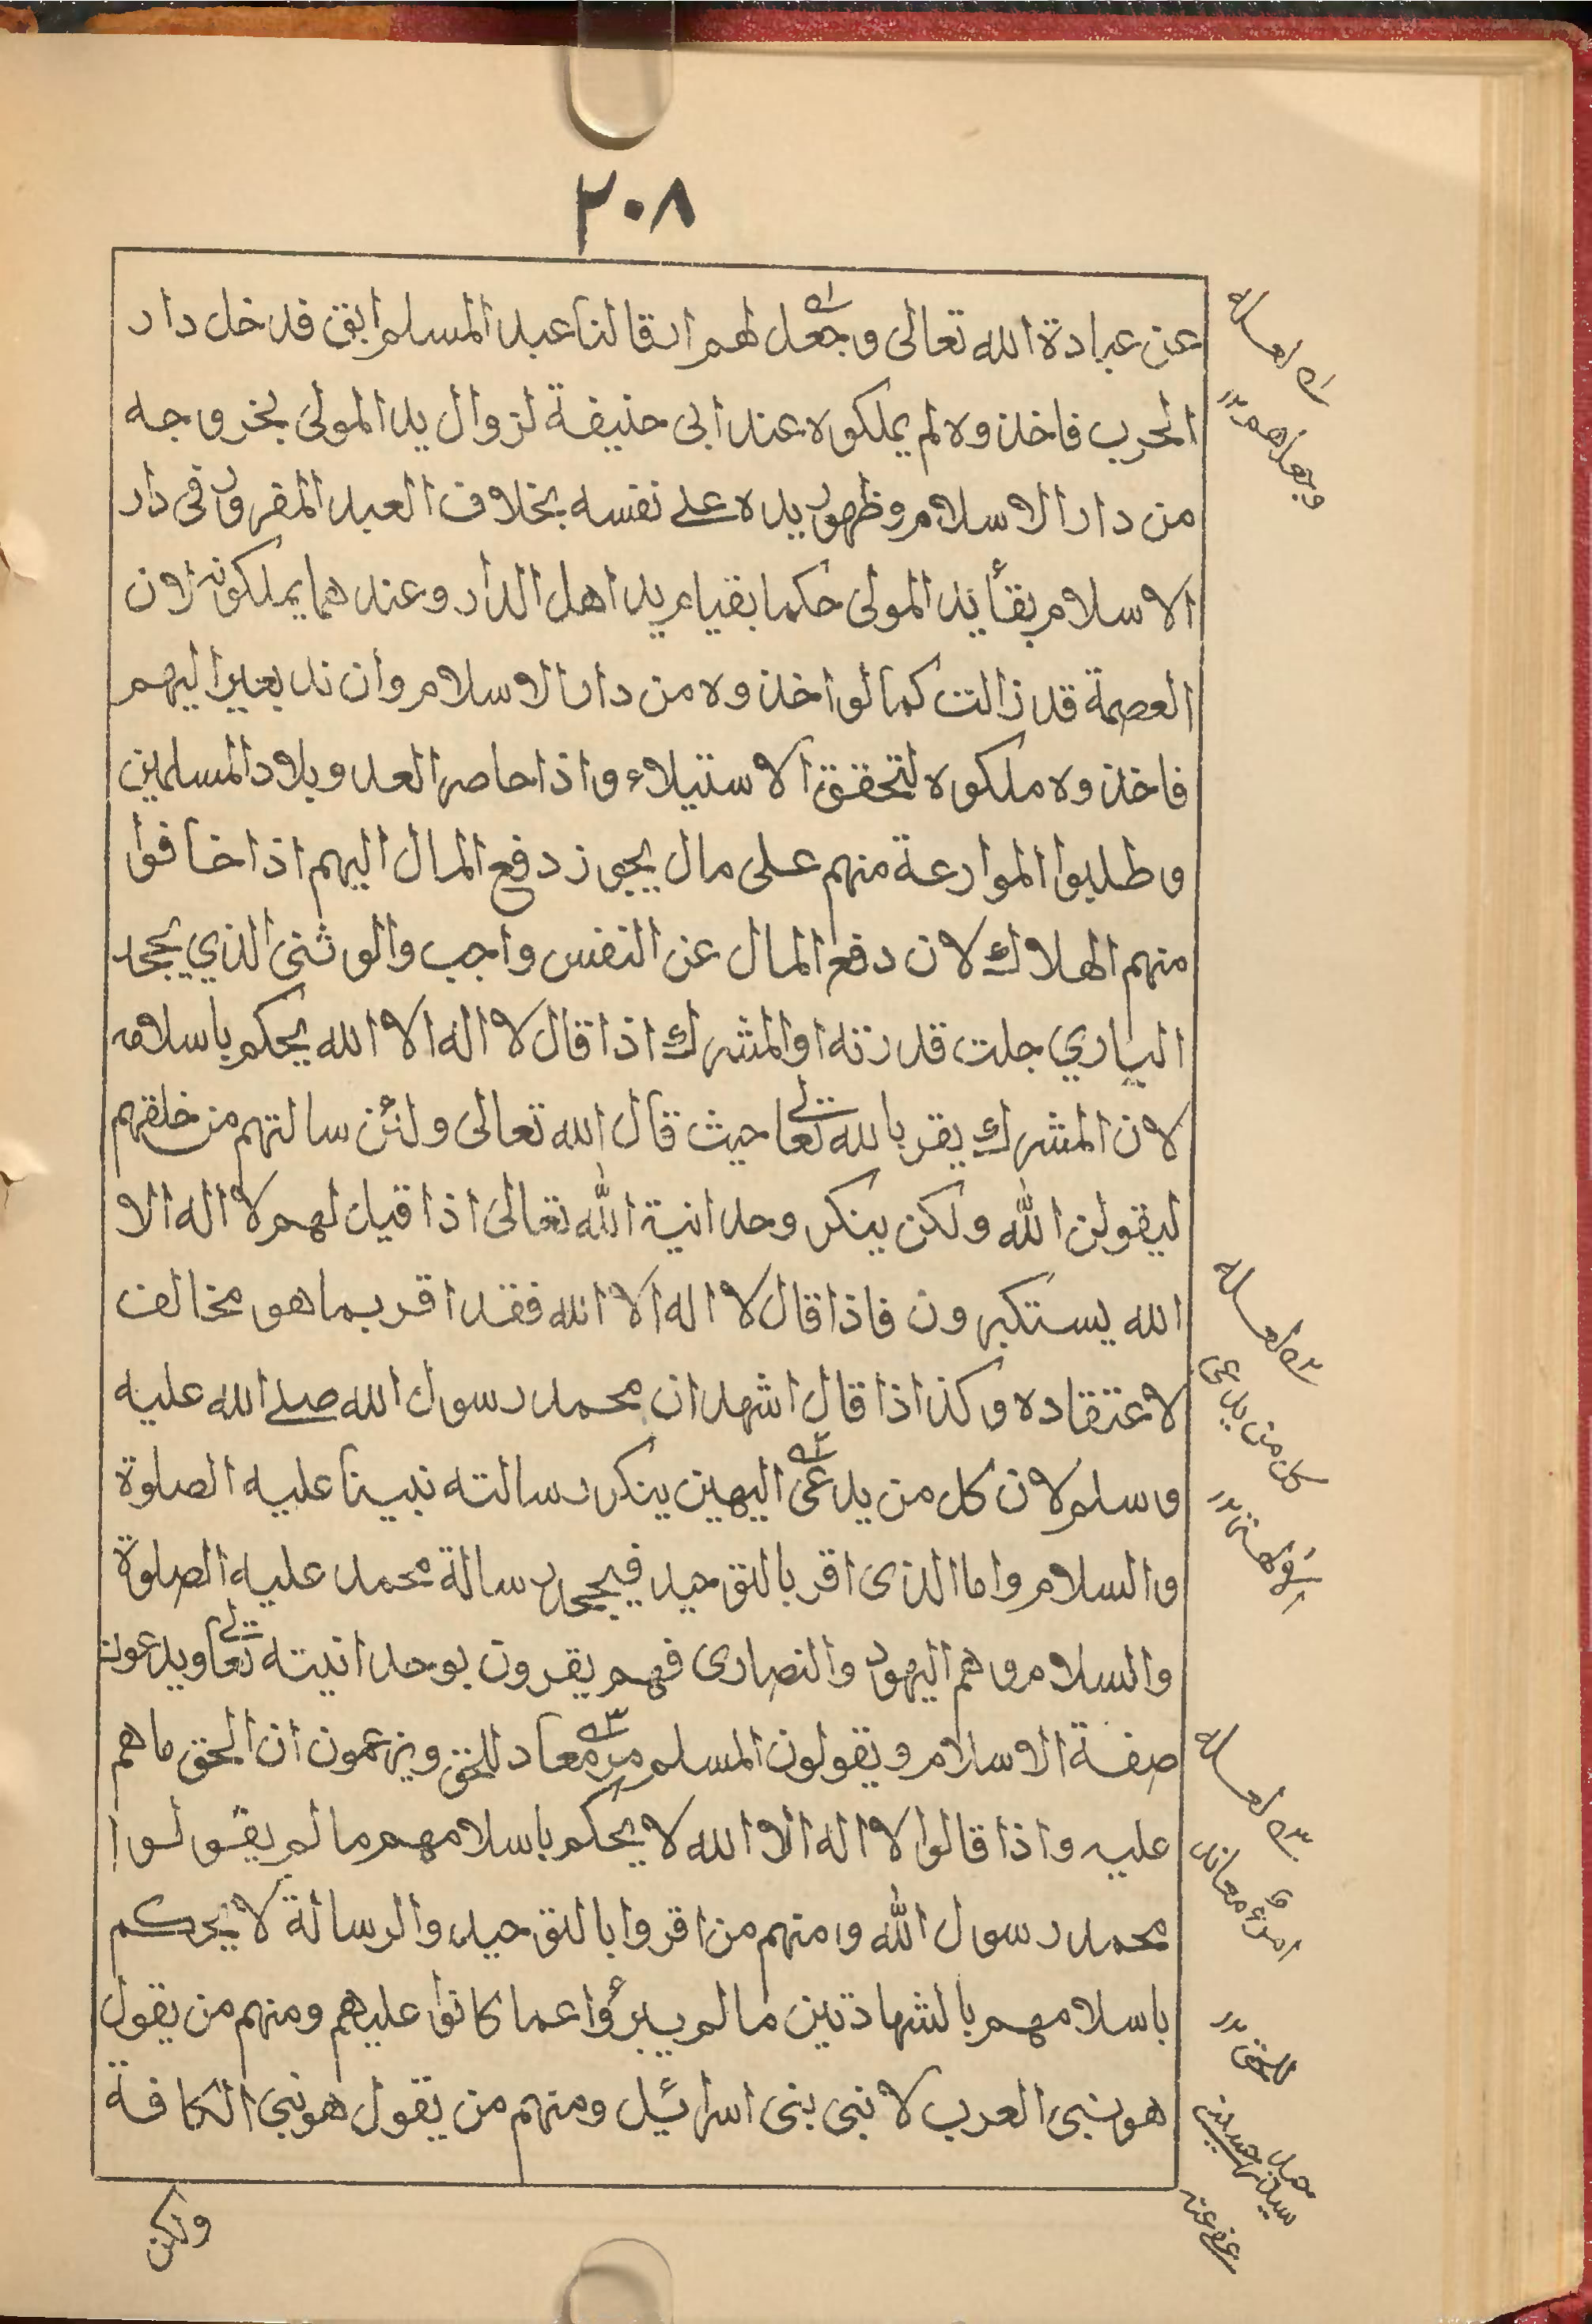 ٢٠٨
عن عبادة الله تعالى وجعل لهم ارقا لنا عبد المسلم ابق فدخل دار
الحرب فاخذوه لم يملكوه عند ابى حنيفة لزوال يد المولى بخروجه
من دار الاسلام وظهور يده على نفسه بخلاف العبد المقرور فى دار
الاسلام بقأ يد المولى حكما بقيام يد اهل الدار وعندهما يملكونه لان
العصمة قد زالت كما لو اخذوه من دار الاسلام وان ند بعير اليهم
فاخذوه ملكوه لتحقق الاستيلاء واذا حاصر العدو بلاد المسلمين
وطلبوا الموارعة منهم على مال يجوز دفع المال اليهم اذا خافوا
منهم الهلاك لان دفع المال عن النفس واجب والوثنى الذي يجحد
الباري جلت قدرته او المشرك اذا قال لا اله الا الله يحكم باسلامه
لان المشرك يقر بالله تعالى حيث قال الله تعالى ولئن سالتهم من خلقهم
ليقولن الله ولكن ينكر وحدانية الله تعالى اذا قيل لهم لا اله الا
الله يستكبرون فاذا قال لا اله الا الله فقد اقر بما هو مخالف
لاعتقاده وكذا اذا قال اشهد ان محمد رسول الله صلے الله عليه
وسلم لان كل من يدعى اليهين ينكر رسالته نبينا عليه الصلوة
والسلام واما الذى اقر بالتوحيد فيجحد رسالة محمد عليه الصلوة
والسلام وهم اليهود والنصارى فهم يقرون بوحدانيته تعالى ويدعون
صفة الاسلام ويقولون المسلم مرء معاد للحق ويزعمون ان الحق ما هم
عليه واذا قالوا لا اله الا الله لا يحكم باسلامهم ما لم يقولوا
محمد رسول الله ومنهم من اقروا بالتوحيد والرسالة لا يحكم
باسلامهم بالشهادتين ما لم يبرؤا عما كانوا عليهم ومنهم من يقول
هو نبى العرب لا نبى بنى اسرائيل ومنهم من يقول هو نبى الكافة
ولكن
وجعلهم
كل من يدعى
للحق
عفى عنه